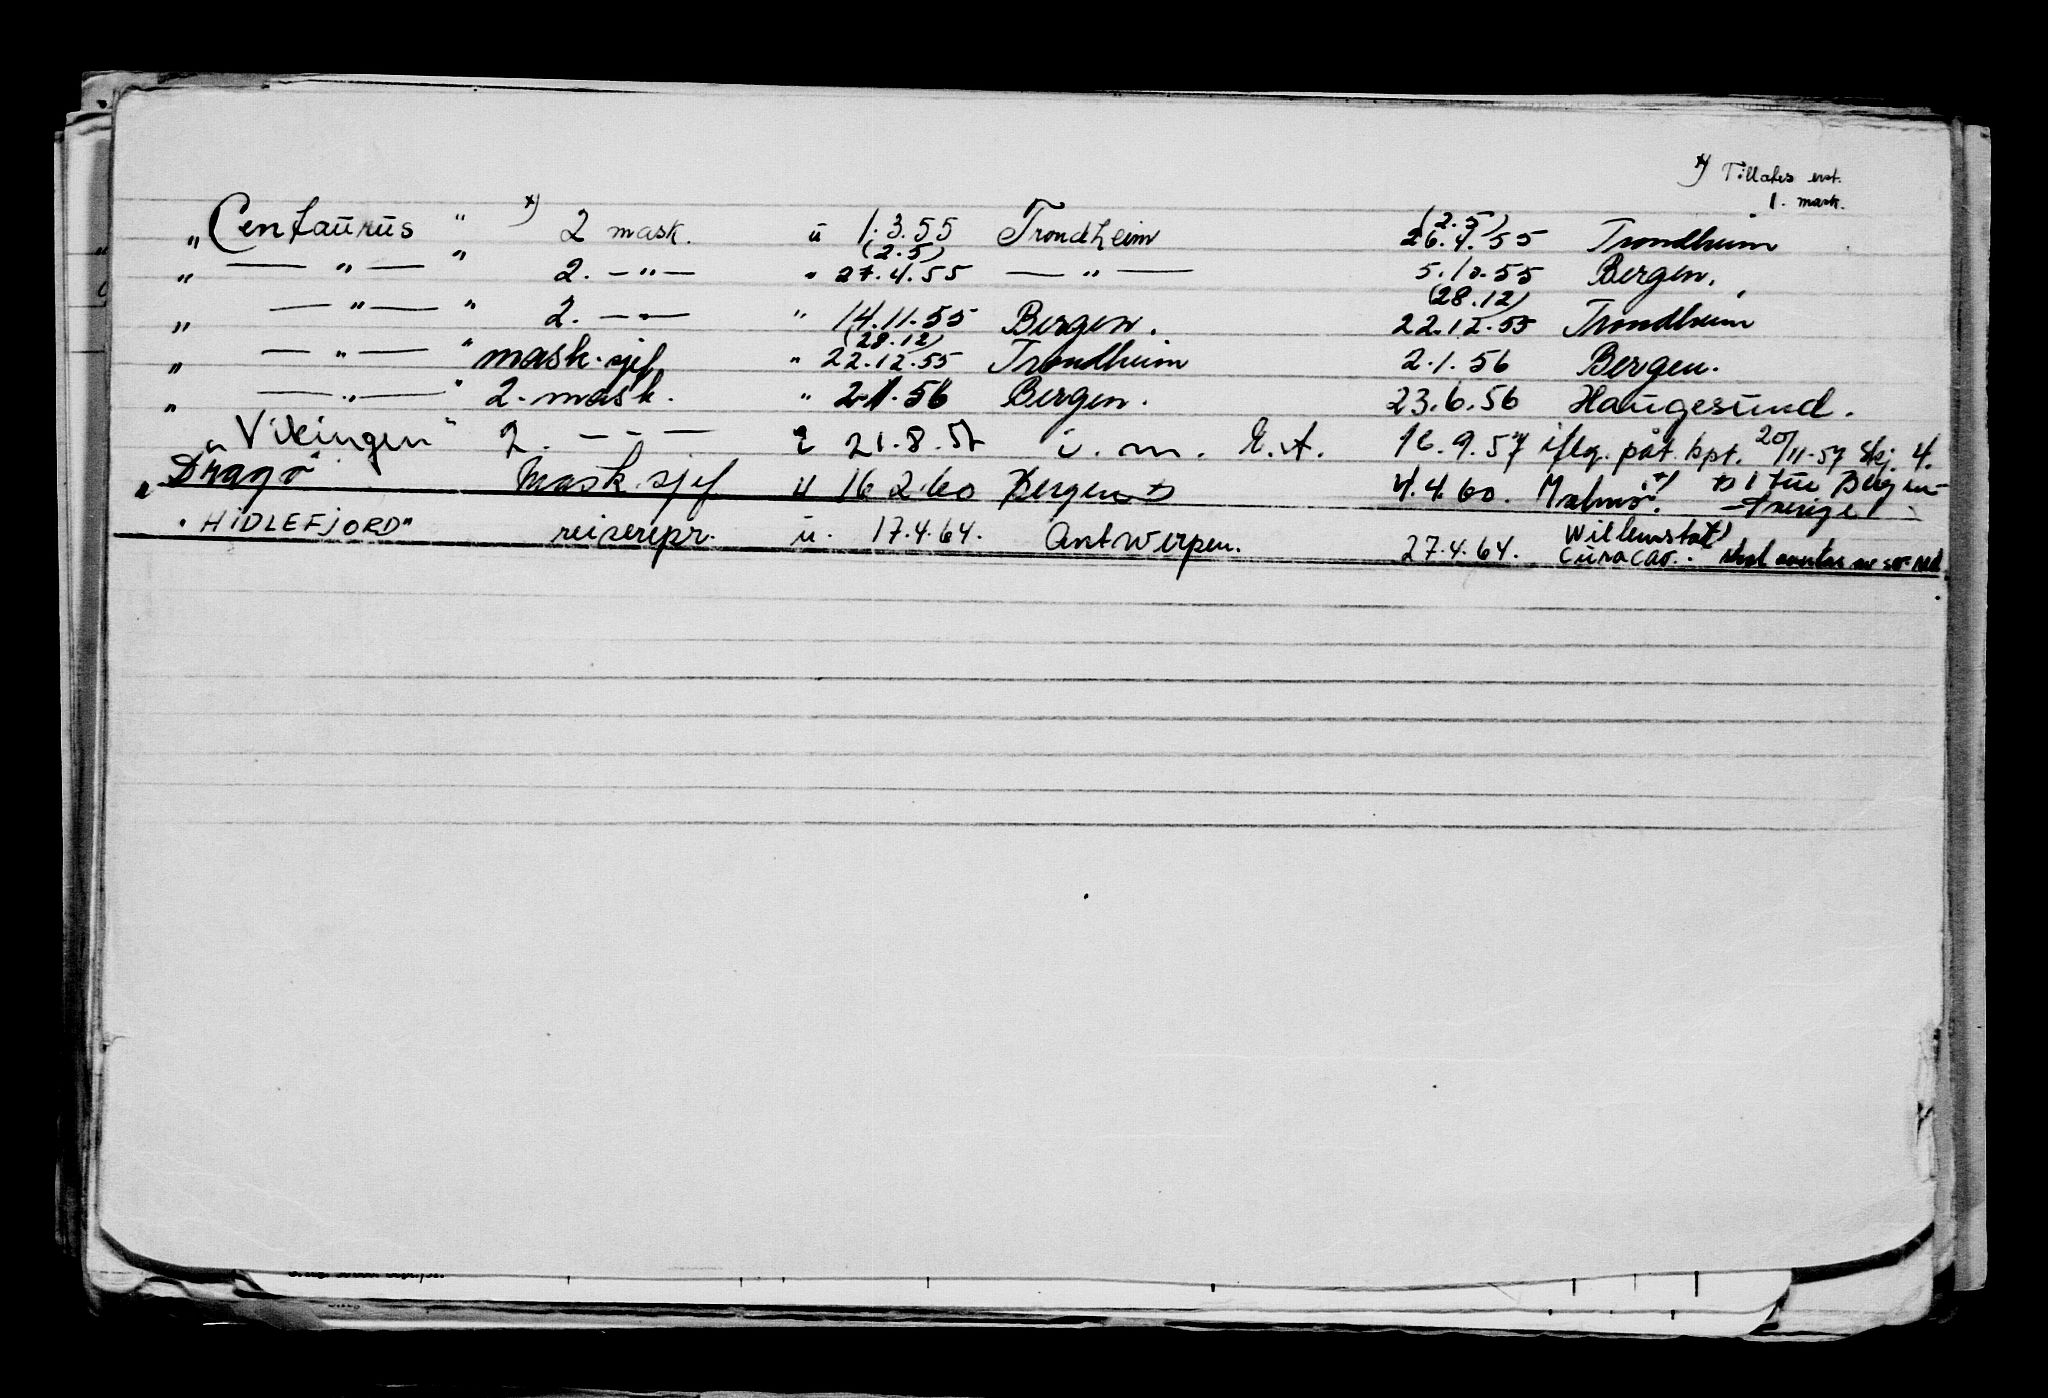 *) Tillates erst.
1. mask.
„Centaurus" *) 2 mask. u 1.3.55 Trondheim (2.5) 26.4.55 Trondheim
„ — " — " 2. — " — " (2.5) 27.4.55 — " — 5.10.55 Bergen.
„ — " — " 2. — " — " 14.11.55 Bergen. (28.12) 22.12.55 Trondheim
„ — " — " mask.sjef " (28.12) 22.12.55 Trondheim 2.1.56 Bergen.
„ — " — " 2. mask. " 2.1.56 Bergen. 23.6.56 Haugesund.
„Vikingen" 2. — — — 21.8.57 i. m. E.A. 16.9.57 iflg. påt. hpt. 20/11-57 Skj. 4.
„Dragø" Mask.sjef u 16 2.60 Bergen 4.4.60. Malmø. 1 tur Bergen - Sverige
"HIDLEFJORD" reiserepr. u. 17.4.64. Antwerpen. 27.4.64. Willemstat Curacao.